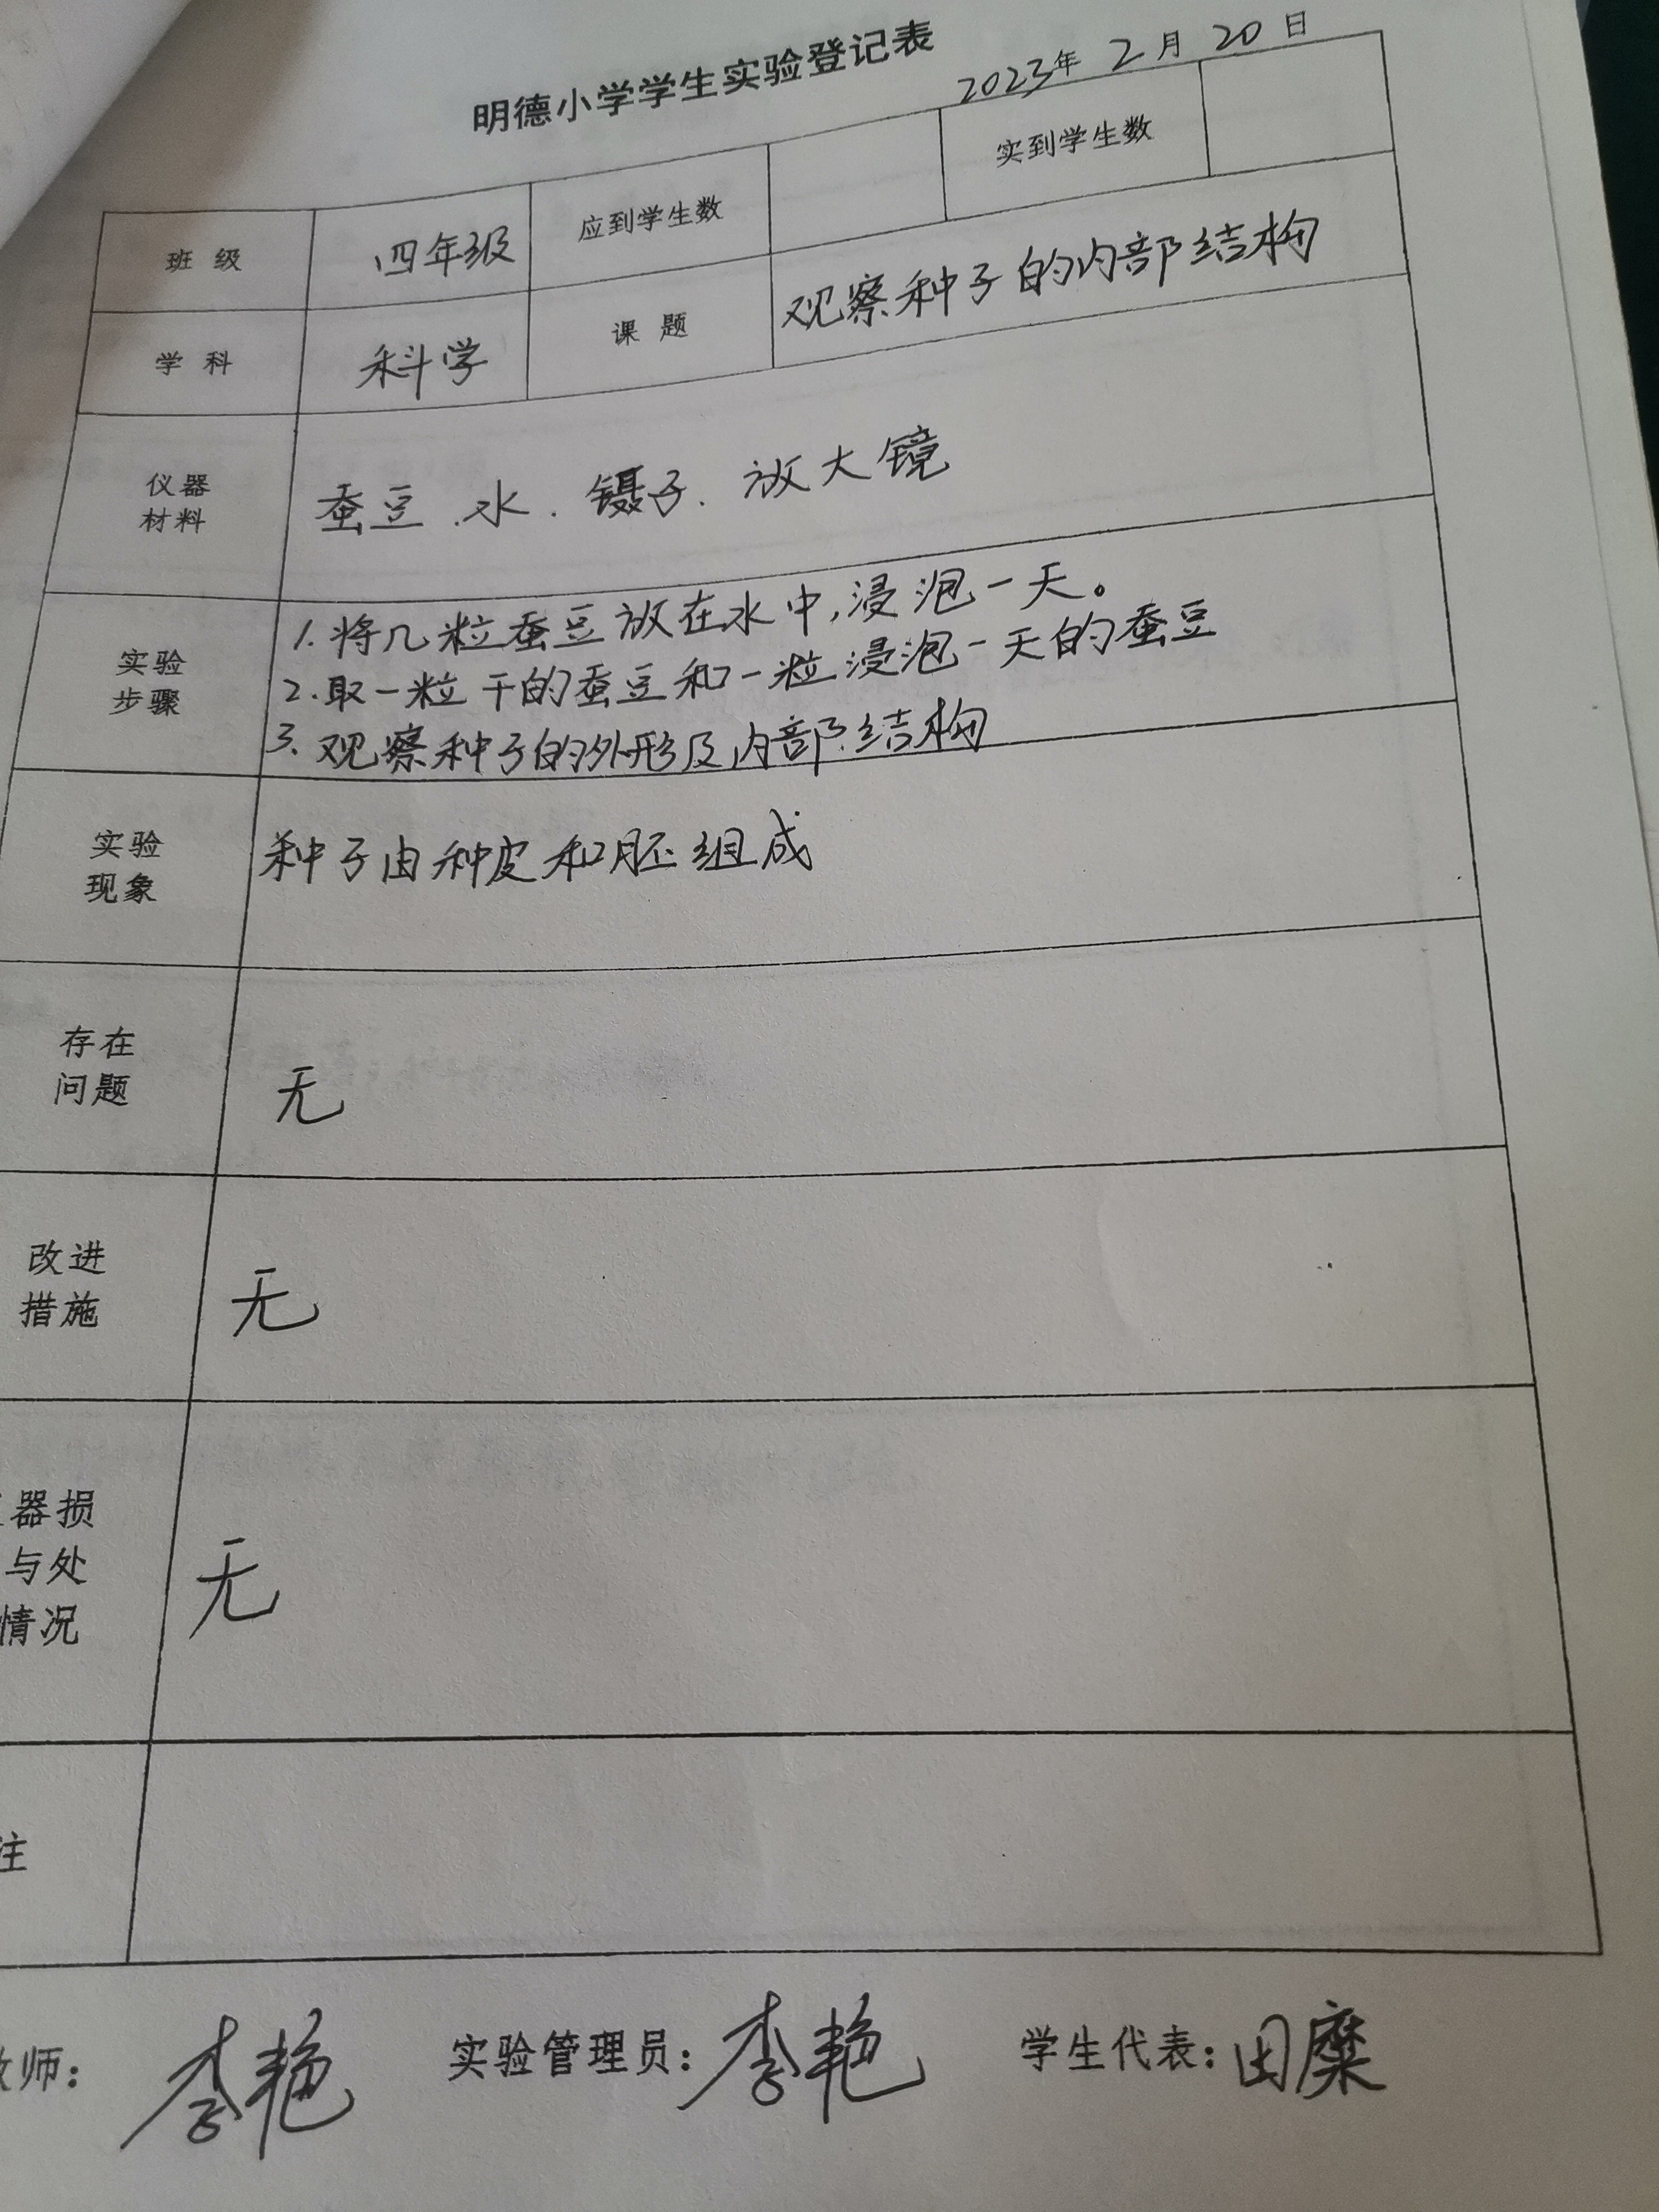 明德小学学生实验登记表
2023年 2月 20日
班级 四年级 应到学生数 实到学生数
学科 科学 课题 观察种子的内部结构
仪器
材料
蚕豆、水、镊子、放大镜
实验
步骤
1. 将几粒蚕豆放在水中,浸泡一天。
2. 取一粒干的蚕豆和一粒浸泡一天的蚕豆
3、观察种子的外形及内部结构
实验
现象
种子由种皮和胚组成
存在
问题
无
改进
措施
无
器损
与处
情况
无
注
师: 李艳 实验管理员: 李艳 学生代表: 田